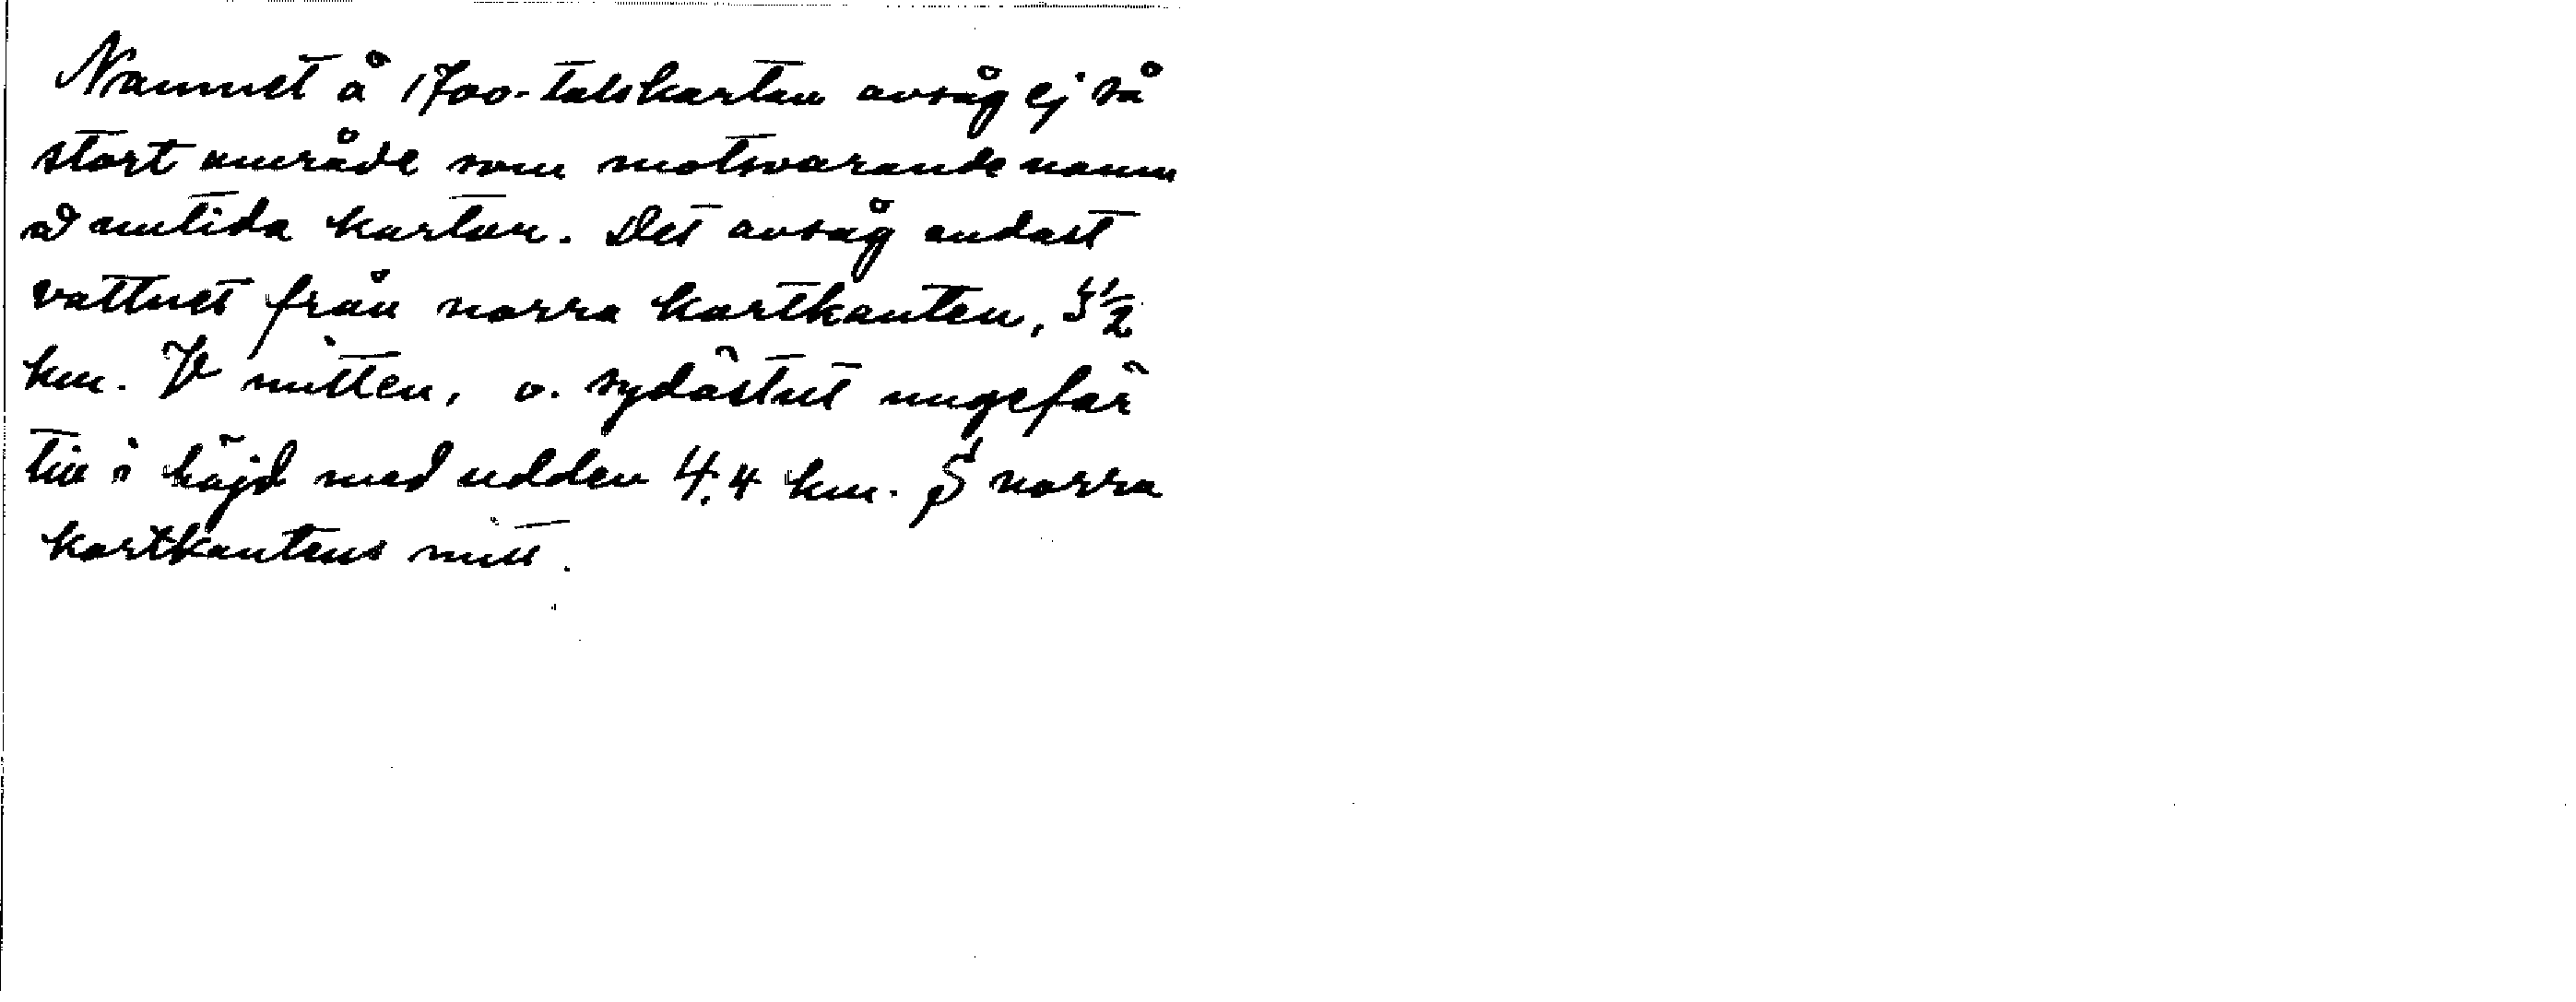 Namnet å 1700-talskartan avsåg ej så
stort område som motsvarande namn
å samtida kartor. Det avsåg endast
vattnet från norra kartkanten, 5 1/2
km. V mitten, o. sydöstut ungefär
till i höjd med udden 4,4 km. S norra
kartkantens mitt.